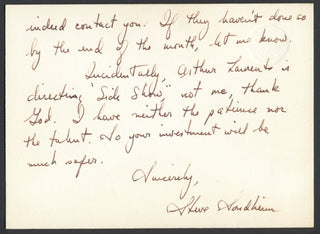 indeed contact you. If they haven't done so
by the end of the month, let me know.
Incidentally, Arthur Laurents is
directing "Side Show," not me, thank
God. I have neither the patience nor
the talent. So your investment will be
much safer.
Sincerely,
Steve Sondheim